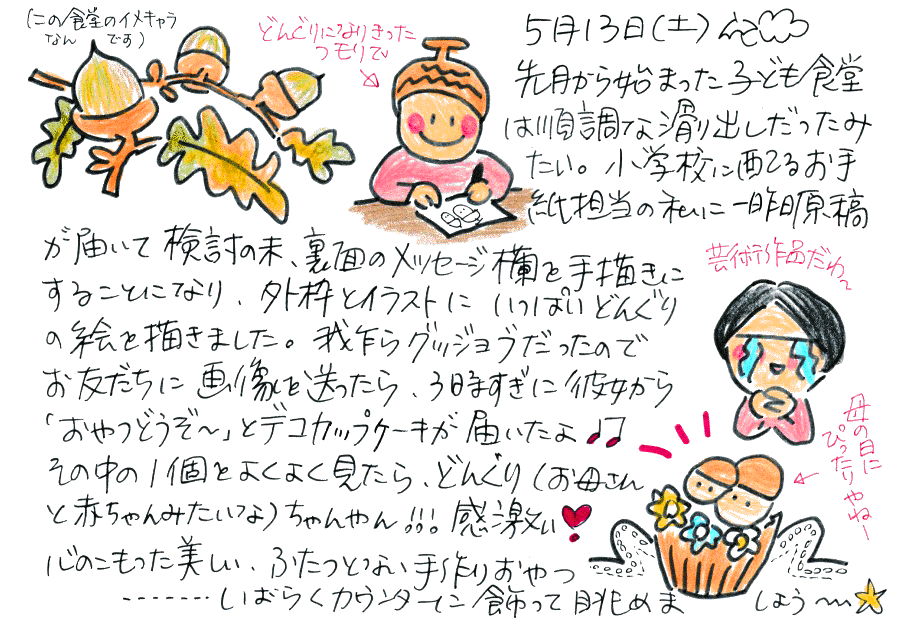 (この食堂のイメキャラ
なんです)
どんぐりになりきった
つもりで
5月13日(土)
先月から始まった子ども食堂
は順調な滑り出しだったみ
たい。小学校に配るお手
紙担当の私に一昨日原稿
が届いて検討の末、裏面のメッセージ欄を手描きに
することになり、外枠とイラストにいっぱいどんぐり
の絵を描きました。我乍らグッジョブだったので
お友だちに画像を送ったら、3時すぎに彼女から
「おやつどうぞ〜」とデコカップケーキが届いたよ♪♫
その中の1個をよくよく見たら、どんぐり(お母さん
と赤ちゃんみたいな)ちゃんやん!!!感激ぃ
心のこもった美しい、ふたつとない手作りおやつ
………しばらくカウンターに飾って眺めましょう〜
芸術作品だわ〜
母の日に
ぴったりやねー